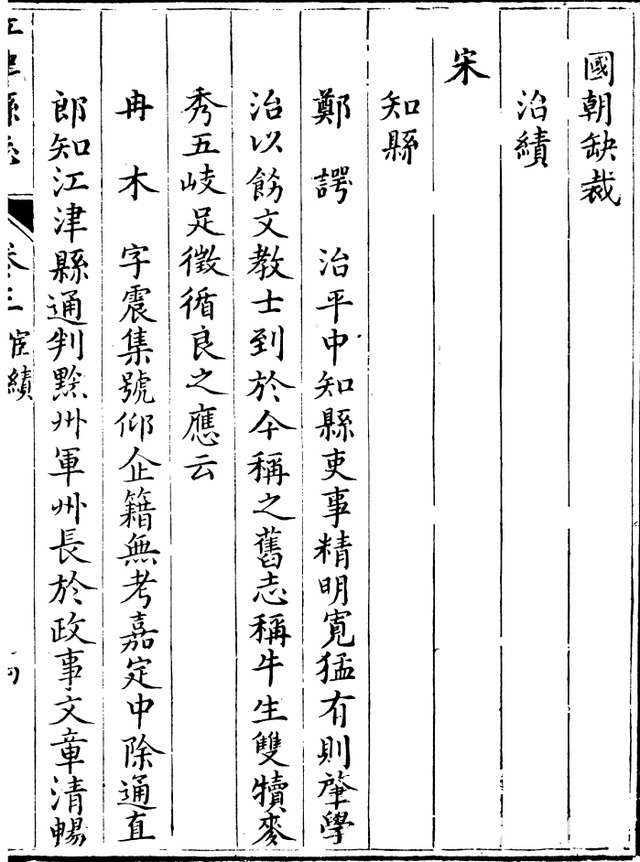 國朝缺裁
治績
宋
知縣
鄭 諤 治平中知縣吏事精明寬猛有則肇學
治以飭文教士到於今稱之舊志稱牛生雙犢麥
秀五岐足徵循良之應云
冉 木 字震集號仰企籍無考嘉定中除通直
郎知江津縣通判黟州軍州長於政事文章清暢
江津縣志
卷三 宦績